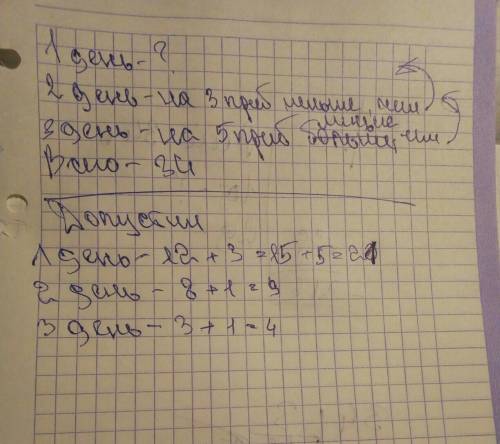 1 день - ?
2 день - на 3 приб меньше чем
меньше
3 день - на 5 приб больше чем
Всего - 34
Допустим
1 день - 12 + 3 = 15 + 5 = 21
2 день - 8 + 1 = 9
3 день - 3 + 1 = 4